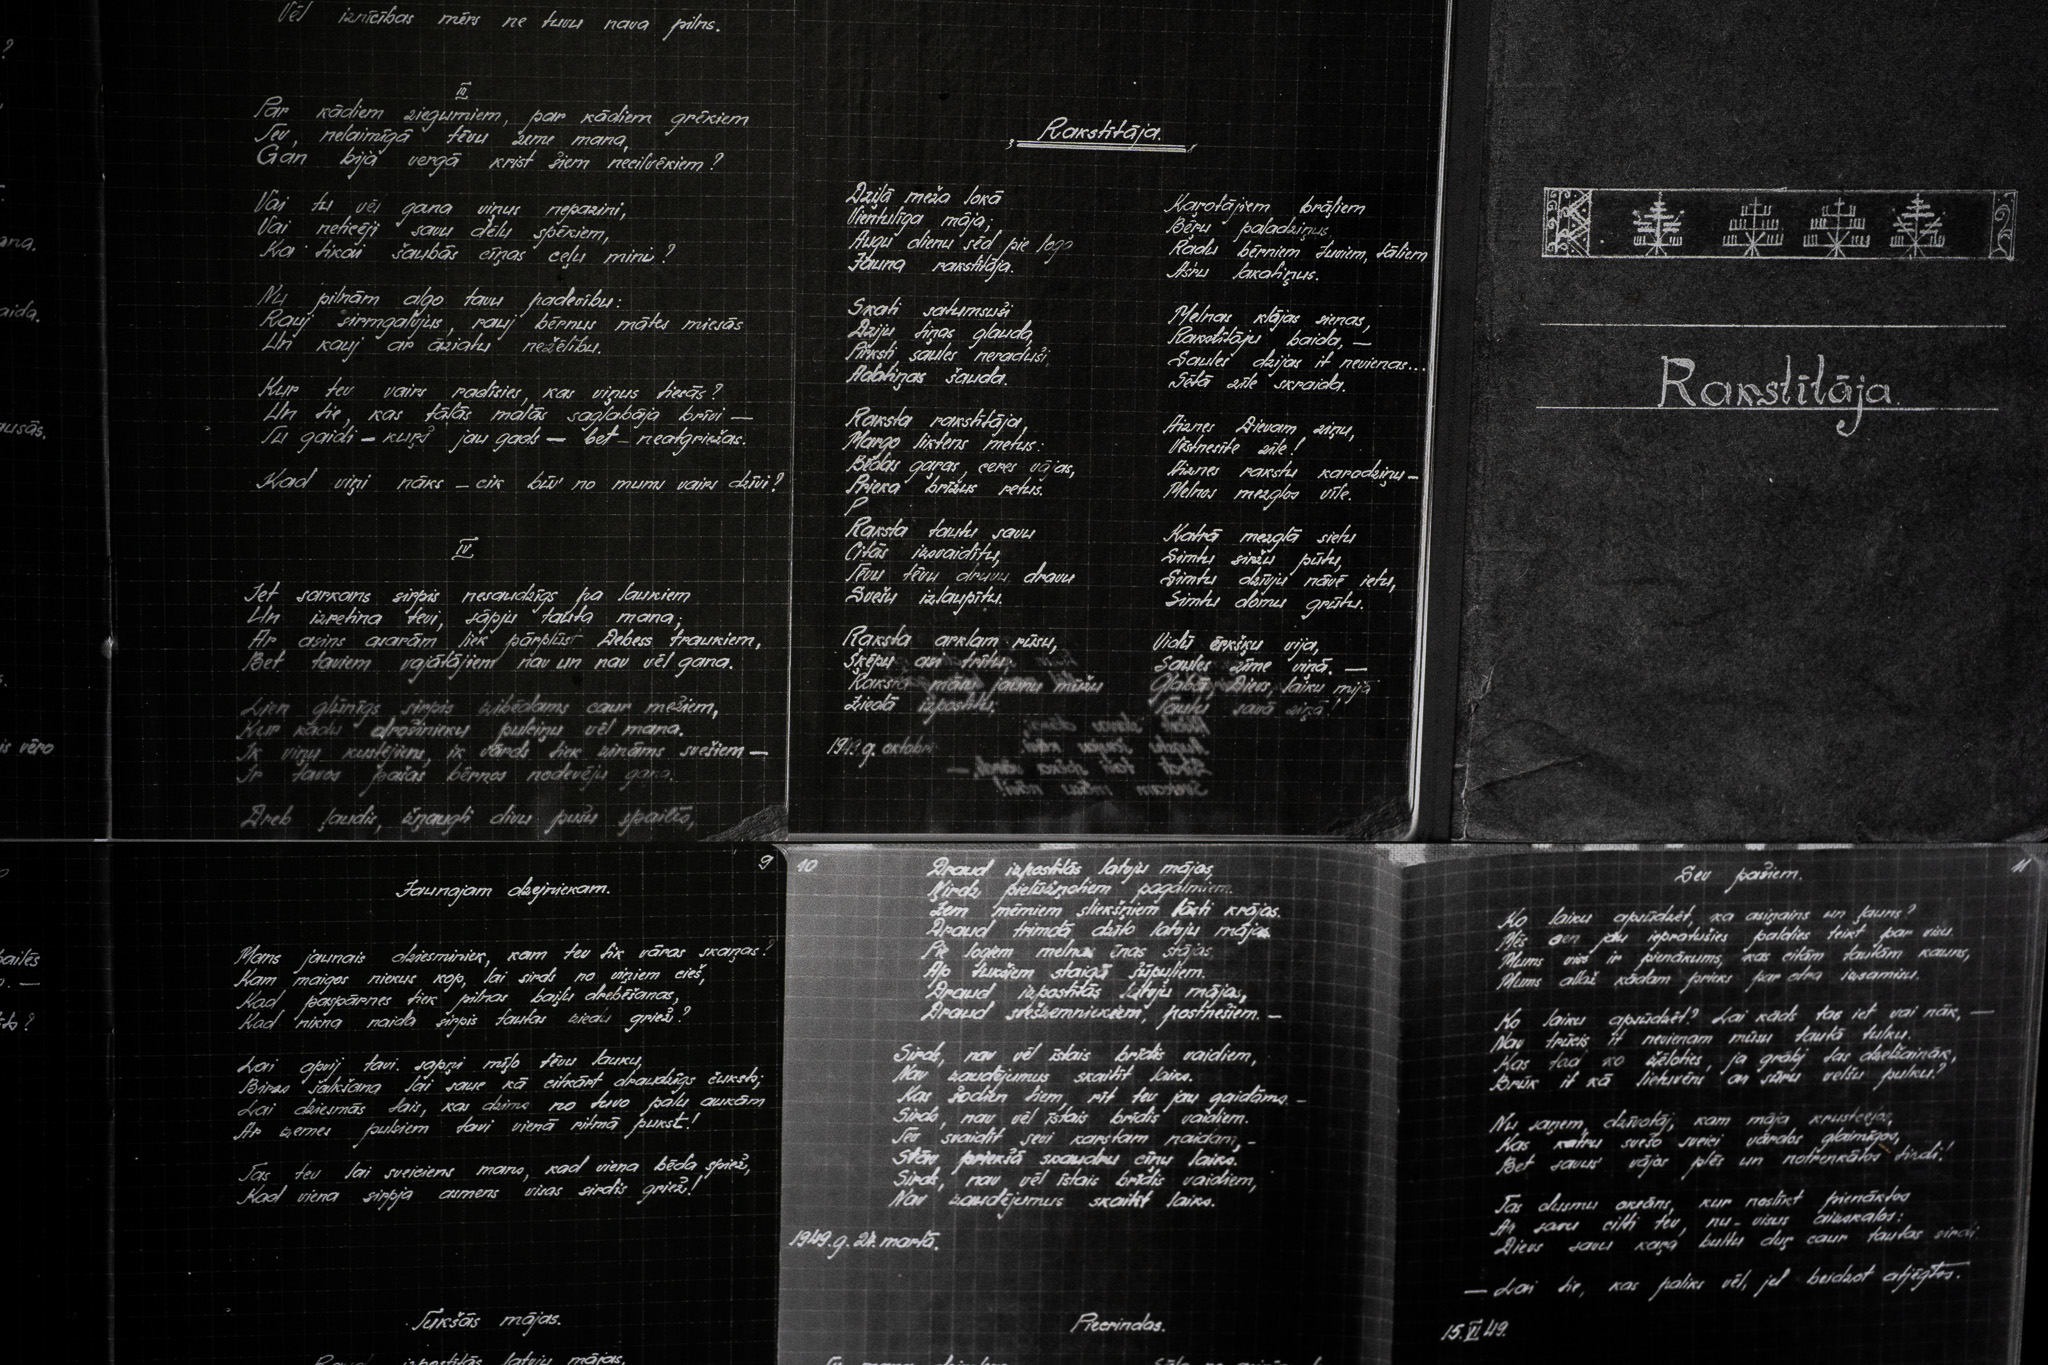 Vēl iznīcības mērs ne tuvu nava pilns.
III
Par kādiem ziegumiem, par kādiem grēkiem
Tev, nelaimīgā tēvu zeme mana,
Gan bija vergā krist šiem necilvēkiem?
Vai tu vēl gana viņus nepazini,
Vai neticēji savu dēlu spēkiem,
Ka tikai šaubās cīņas ceļu mini?
Nu pilnām algo tavu padevību:
Rauj sirmgalvjus, rauj bērnus mātes miesās
Un kauj ar āziatu nežēlību.
Kur tev vairs radīsies, kas viņus tiesās?
Un tie, kas tālās malās saglabāja brīvi —
Tu gaidi — kurš jau gads — bet — neatgriežas.
Kad viņi nāks — cik būs no mums vairs dzīvi?
IV
Iet sarkans sirpis nesaudzīgs pa laukiem
Un izretina tevi, sāpju tauta mana;
Ar asins asarām liek pārplūst Debess traukiem,
Bet taviem vajātājiem nav un nav vēl gana.
Lien glūnīgs sirpis zibēdams caur mežiem,
Kur kādu drošinieku pulciņu vēl mana.
Ik viņu kustējiens, ik vārds tiek zināms svešiem —
Ir tavos pašas bērnos nodevēju gana.
Dreb ļaudis, žņaugti divu pušu spailēs,
Rakstītāja.
Dziļā meža lokā
Vientulīga māja;
Augu dienu sēd pie loga
Jauna rakstītāja.
Skati satumsuši
Dziju tinas glauda,
Pirksti saules neraduši
Adatiņas šauda.
Raksta rakstītāja,
Margo liktens metus:
Bēdas garas, ceres vājas,
Prieka brīžus retus.
P
Raksta tautu savu
Citās izvaidītu,
Tēvu tēvu druvu dravu
Svešu izlaupītu.
Raksta arklam rūsu,
Šķēpu
Raksta māsu jaunu mūžu
Ziedā izpostītu;
Karotājiem brāļiem
Bēru paladziņus,
Radu bērniem tuviem, tāliem
Asru lakatiņus.
Melnas klājas sienas,
Rakstītāju baida, —
Saules dzijas it nevienas...
Sētā zīle skraida.
Aiznes Dievam ziņu,
Vēstnesīte zīle!
Aiznes rakstu karodziņu —
Melnos mezglos vīle.
Katrā mezglā sietu
Simtu siržu pūtu,
Simtu dzīvju nāvē ietu,
Simtu domu grūtu.
Vidū ērkšķu vija,
Saules zīme viņā. —
Glabā Dievs, laiku mijā
Tautu savā ziņā!
g. oktobrī
Rakstītāja.
9
Jaunajam dzejniekam.
Mans jaunais dziesminiek, kam tev tik vāras skaņas?
Kam maigos niekus kop, lai sirds no viņiem cieš,
Kad paspārnes tiek pilnas baiļu drebēšanas,
Kad nikna naida sirpis tautas ziedu griež?
Lai apvij tavi sapņi mīļo tēvu lauku,
Birzs šalkšana lai saue kā citkārt draudzīgs čuksts;
Lai dziesmās tais, kas dzims no tavo pātu aukām
Ar zemes pulsiem tavi vienā ritmā pukst!
Tas tev lai sveiciens mans, kad viena bēda spiež,
Kad viena sirpja asmens visas sirdis griež!
Tukšās mājas.
10
Draud izpostītās latvju mājas,
Ņirdz pielūžņotiem pagalmiem.
Zem mēmiem sliekšņiem lāsti krājas.
Draud trimdā dzīto latvju mājas
Pie logiem melnas ēnas stājas,
Ap tukšiem staigā šūpuļiem.
Draud izpostītās latvju mājas,
Draud svešzemniekiem, postnešiem. —
Sirds, nav vēl īstais brīdis vaidiem,
Nav zaudējumus skaitīt laiks.
Kas šodien tiem, rīt tev jau gaidāms. —
Sirds, nav vēl īstais brīdis vaidiem.
Tev svaidīt sevi karstam naidam, —
Stāv priekšā skaudru cīņu laiks.
Sirds, nav vēl īstais brīdis vaidiem,
Nav zaudējumus skaitīt laiks.
1949. g. 24. martā.
Piecrindas.
11
Sev pašiem.
Ko laiku apsūdzēt, ka asiņains un ļauns?
Mēs sen jau iepratušies paldies teikt par visu
Mums viss ir pienākums, kas citām tautām kauns,
Mums allaž kādam prieks par otra izsamisu.
Ko laiku apsūdzēt? Lai kāds tas iet vai nāk, —
Nav trūcis it nevienam mūsu tautā tulku.
Kas tad ko žēloties, ja grābj tas dzelžaināk,
Brūk it kā lietuvēns ar sūru velšu pulku?
Nu saņem, dzīvotāj, kam māja krustceļos,
Kas katru svešo sveici vārdos glaimīgos,
Bet savus vājos plēs un notrenkātos tirdi!
Tas dusmu okeāns, kur noslīkt pienāktos
Ar savu cilti tev, nu- visus aizskalos:
Dievs savu kaŗa bultu duŗ caur tautas sirdi
— Lai tie, kas paliks vēl, jel beidzot atjēgtos.
15. VI 49.